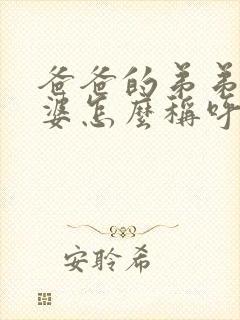 爸爸的弟弟
婆怎麼稱呼
安聆希